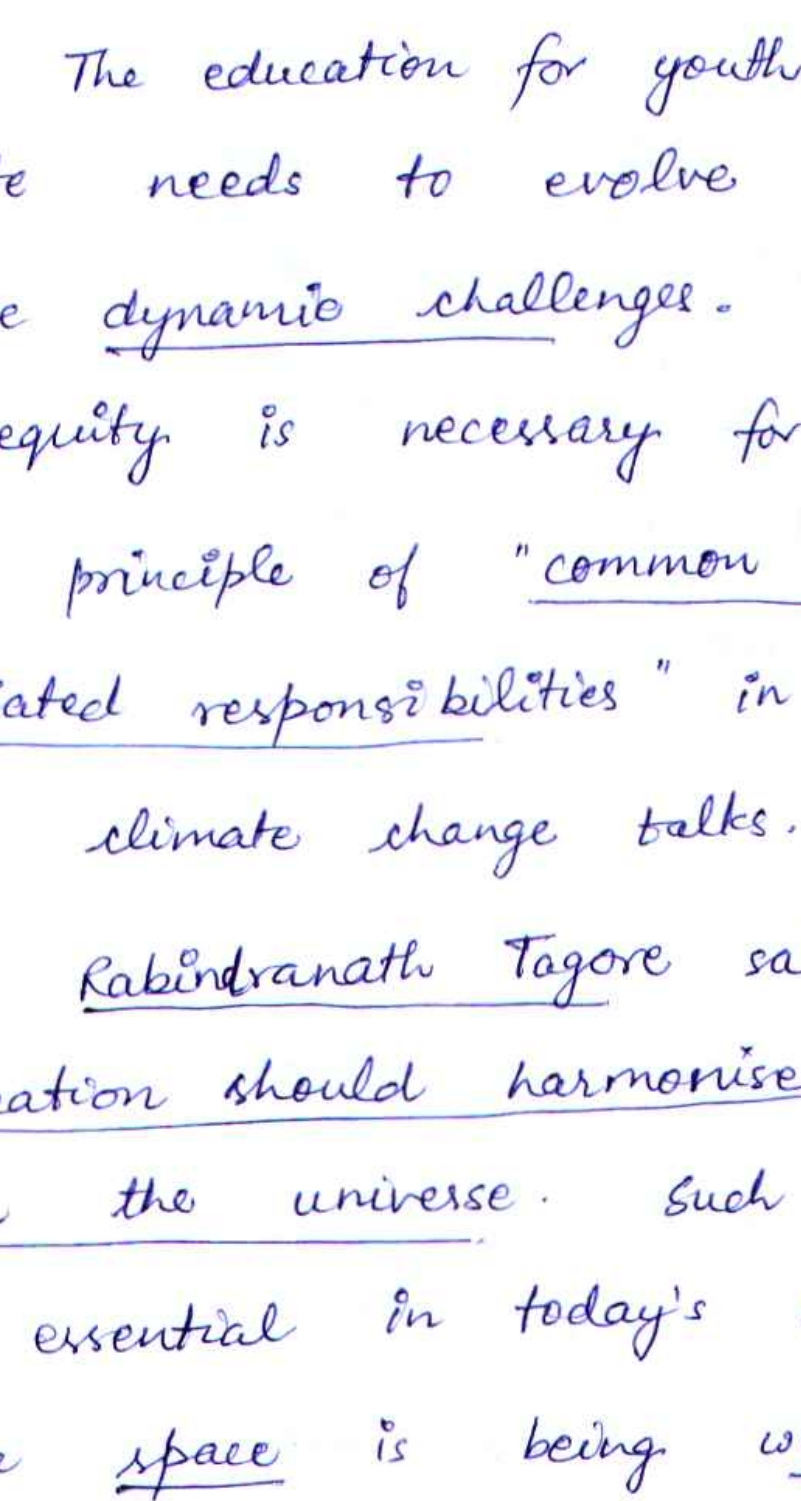 The education for youth
te needs to evolve
e dynamic challenges.
equity is necessary for
principle of "common
iated responsibilities" in
climate change talks.
Rabindranath Tagore sa
ation should harmonise
the universe. Such
essential in today's
space is being w